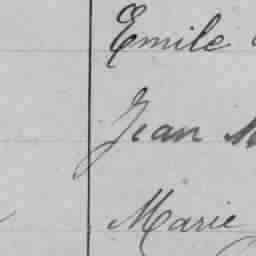 Emile
Jean
Marie